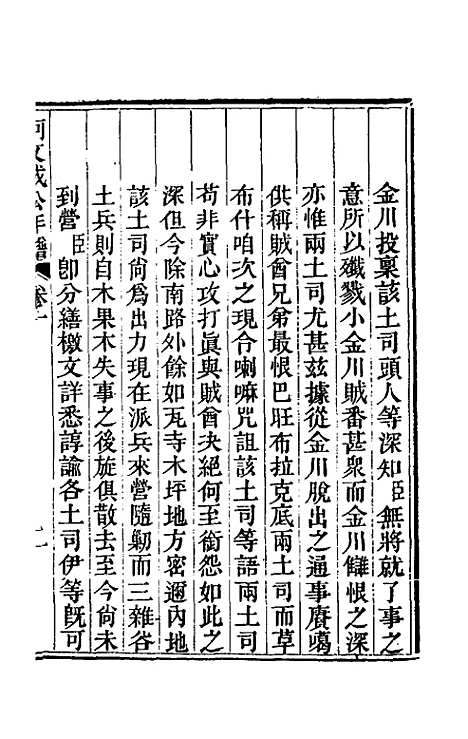 金川投稟該土司頭人等深知臣無將就了事之
意所以殲戮小金川賊番甚衆而金川讎恨之深
亦惟兩土司尤甚茲據從金川脫出之通事賡噶
供稱賊酋兄弟最恨巴旺布拉克底兩土司而革
布什咱次之現合喇嘛咒詛該土司等語兩土司
苟非實心攻打眞與賊酋决絕何至銜怨如此之
深但今除南路外餘如瓦寺木坪地方密邇內地
該土司尙爲出力現在派兵來營隨勦而三雜谷
土兵則自木果木失事之後旋俱散去至今尙未
到營臣卽分繕檄文詳悉諄諭各土司伊等旣可
阿文成公年譜 卷十